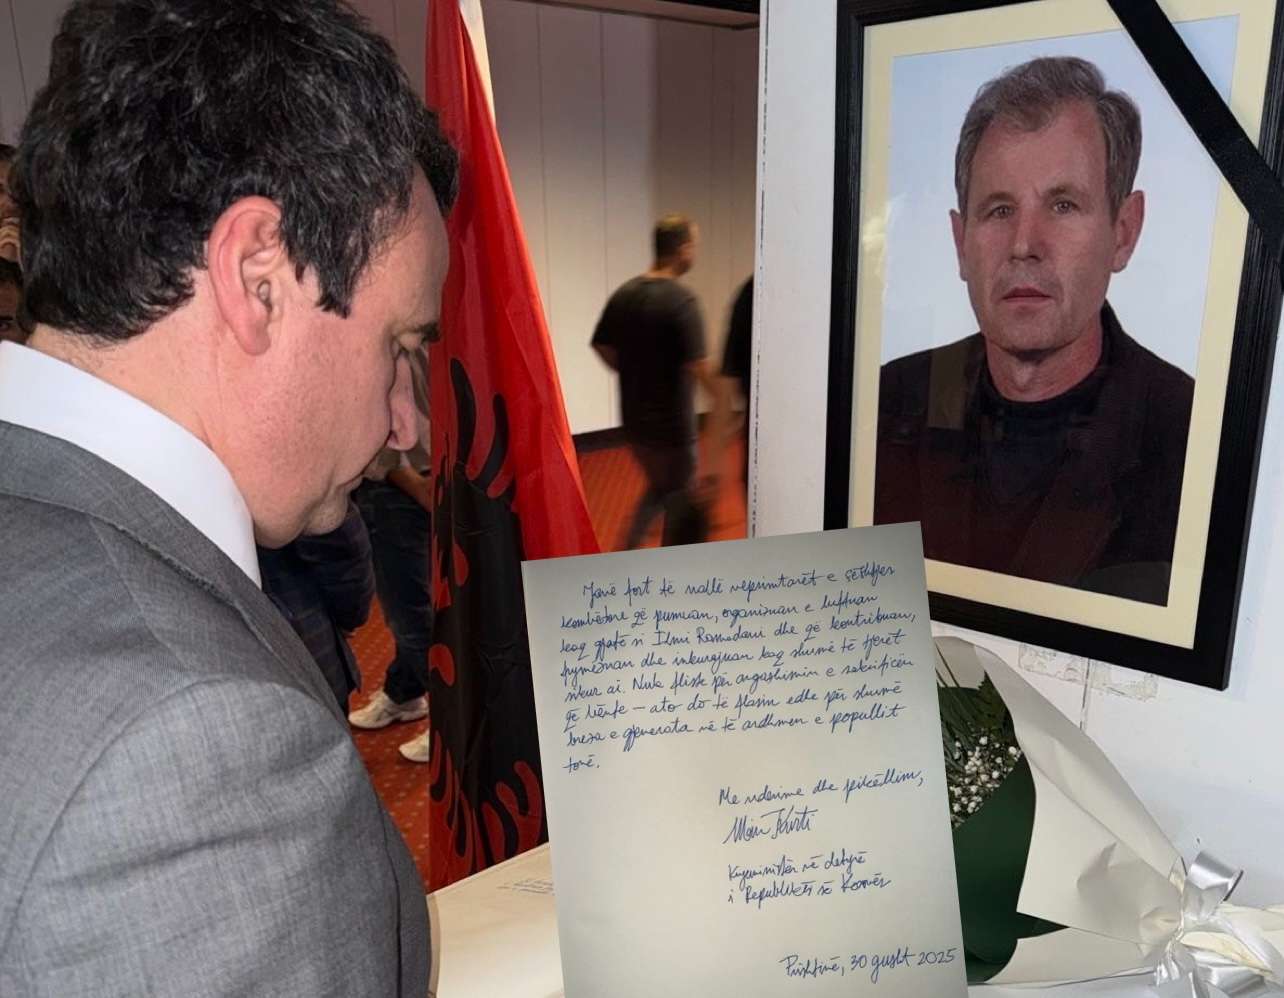 Janë fort të rrallë veprimtarët e çështjes
kombëtore që punuan, organizuan e luftuan
kaq gjatë si Ilmi Ramadani dhe që kontribuan,
frymëzuan dhe inkurajuan kaq shumë të tjerët
sikur ai. Nuk fliste për angazhimin e sakrificën
që bënte – ato do të flasin edhe për shumë
breza e gjenerata në të ardhmen e popullit
tonë.
Me nderime dhe pikëllim,
Albin Kurti
Kryeministër në detyrë
i Republikës së Kosovës
Prishtinë, 30 gusht 2025